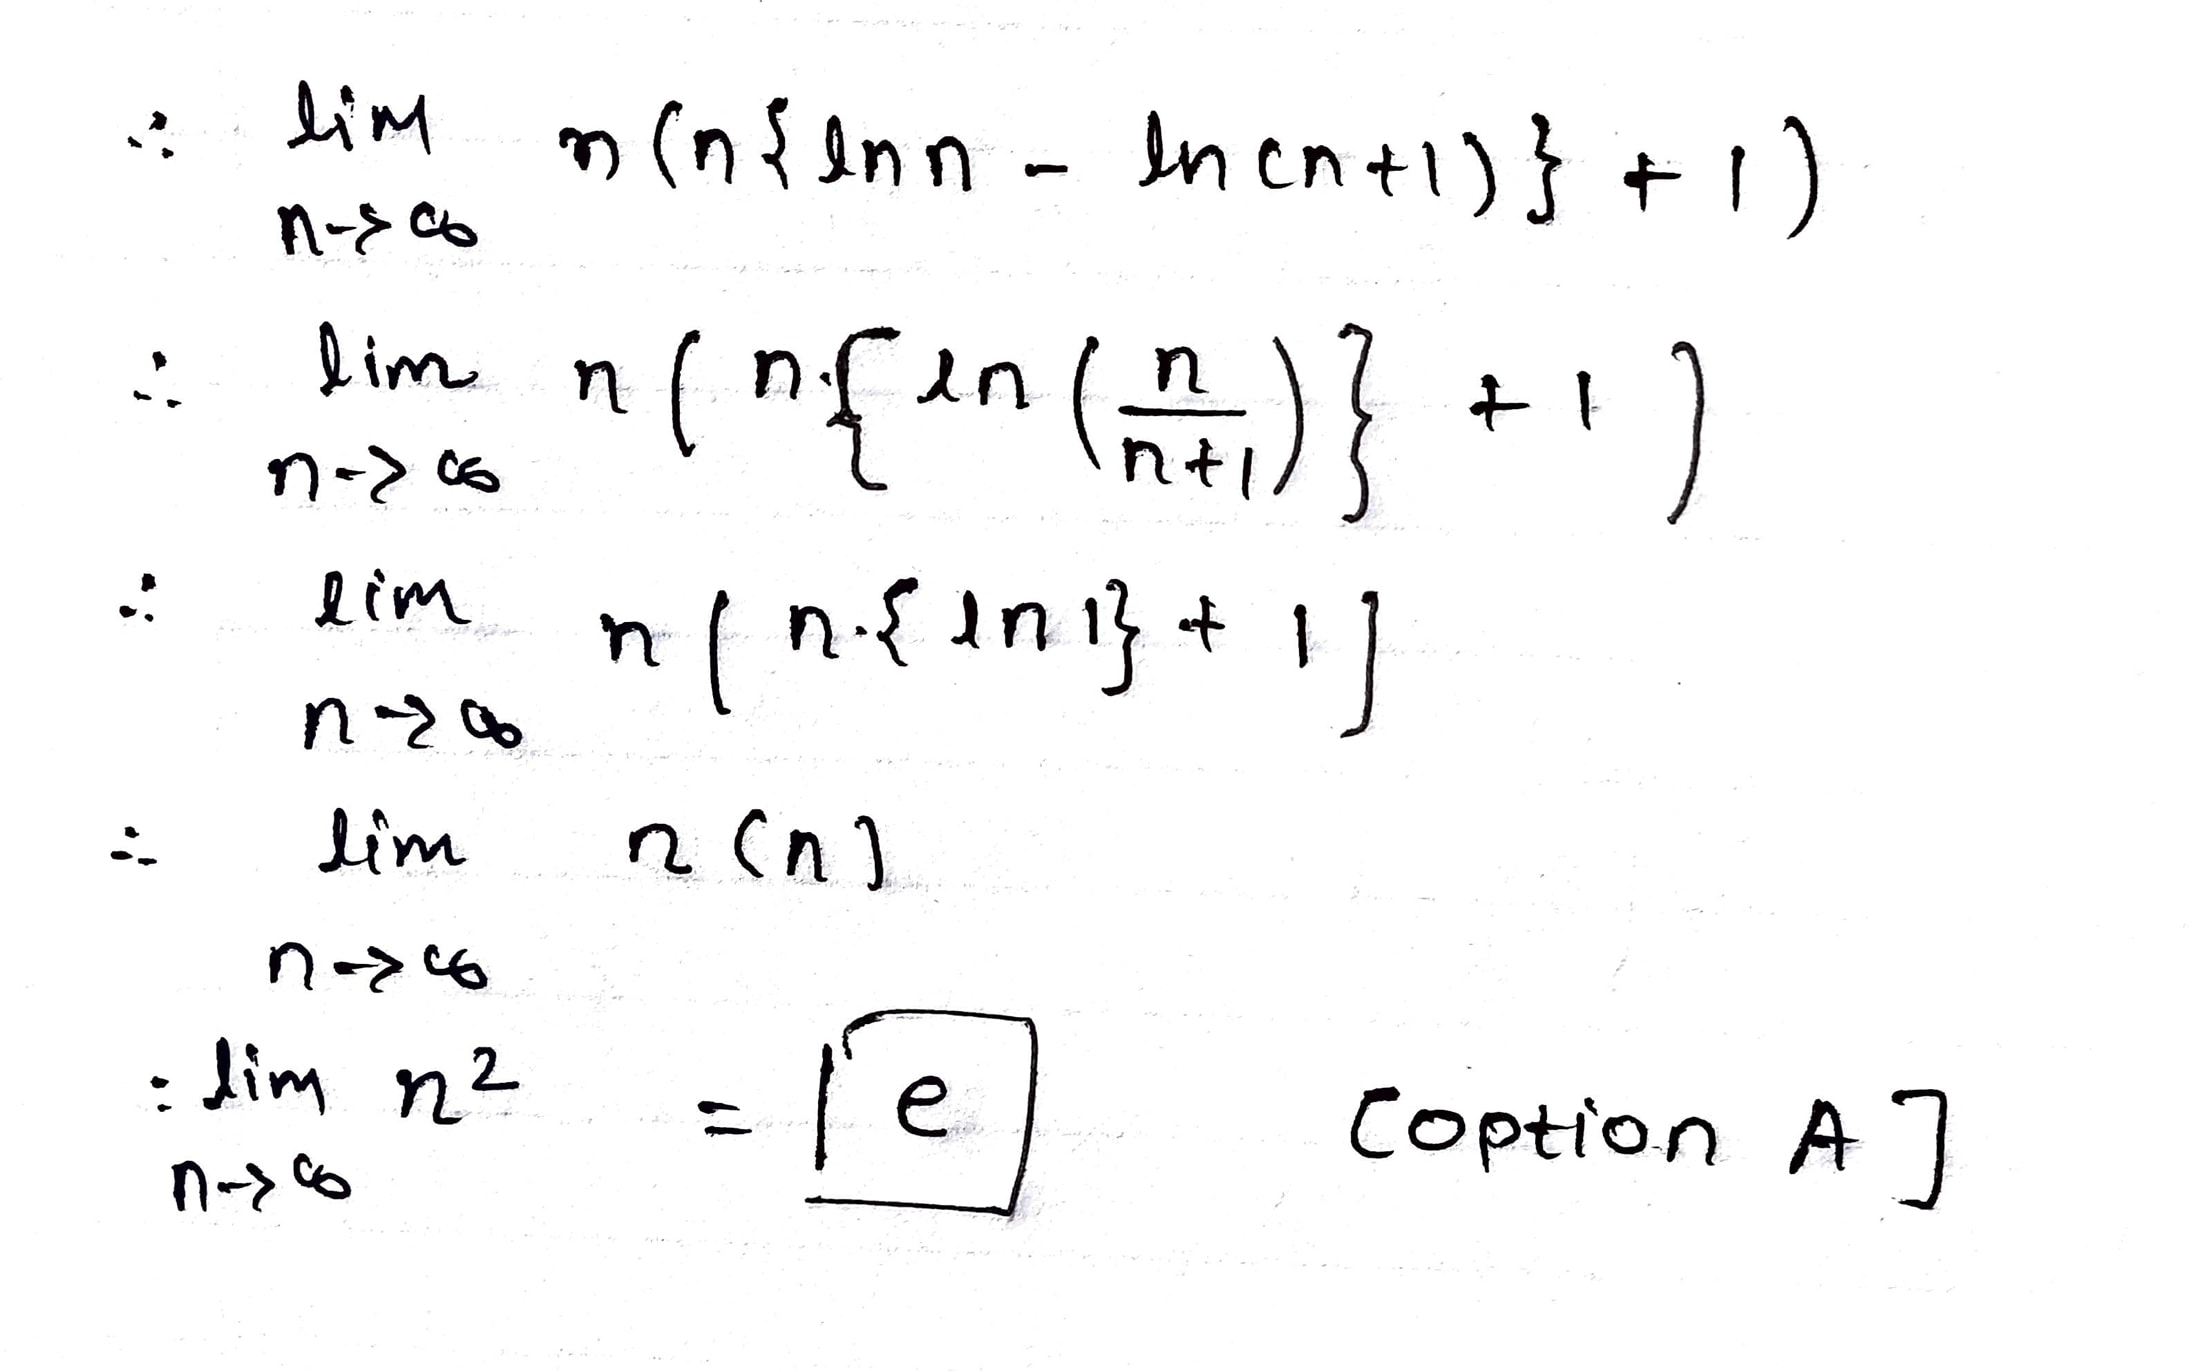 ∴ lim n(n{lnn - ln(n+1)} + 1)
n->∞
∴ lim n(n.{ln(n/n+1)} + 1)
n->∞
∴ lim n(n.{ln1} + 1]
n->∞
∴ lim n(n)
n->∞
: lim n² = e (option A]
n->∞